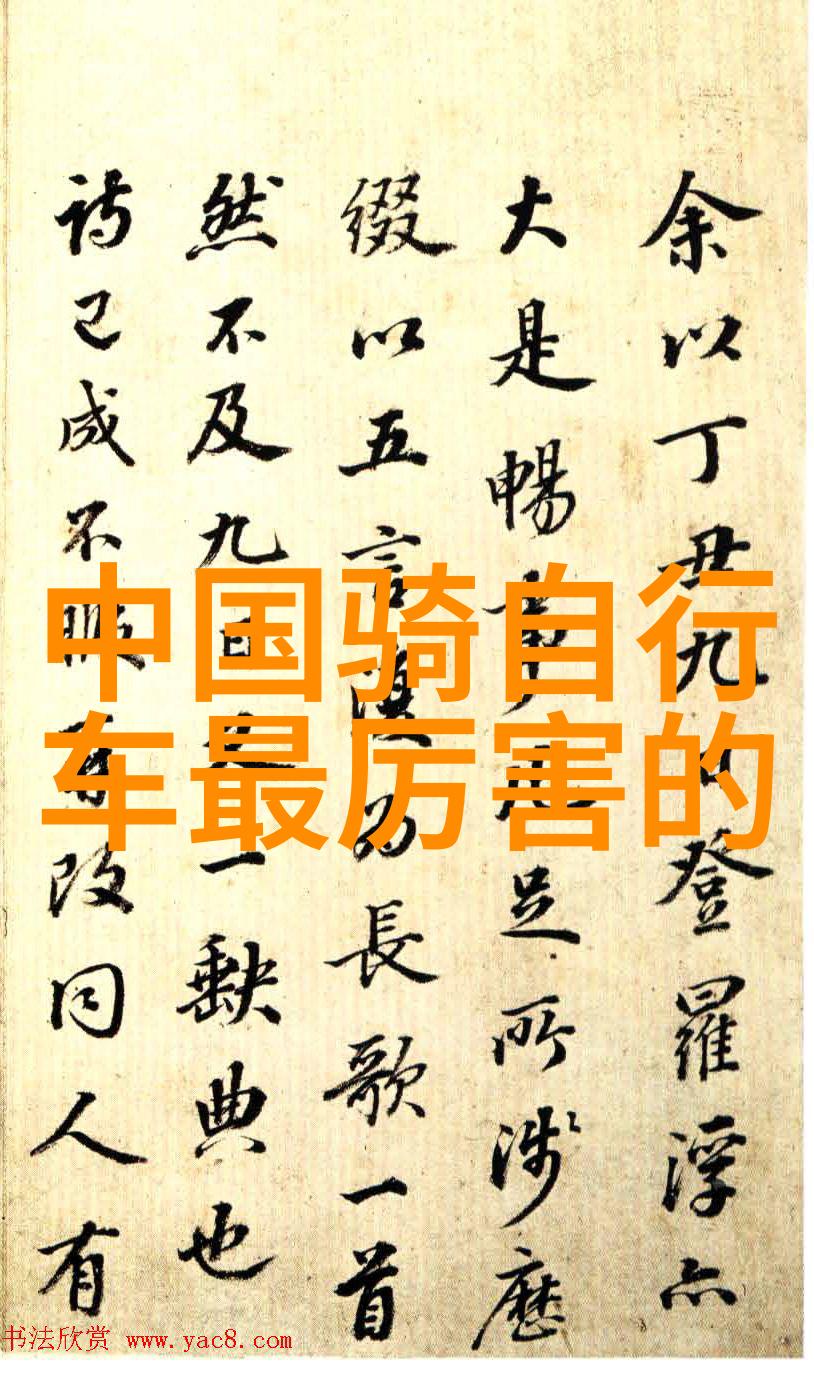 余以丁丑九日登羅浮亦
大是暢事凡足所涉歷
綴以五言為長歌一首
然不及九日一缺典也
詩已成不改同人有
中国骑自行
车最厉害的
书法欣赏 www.yac8.com